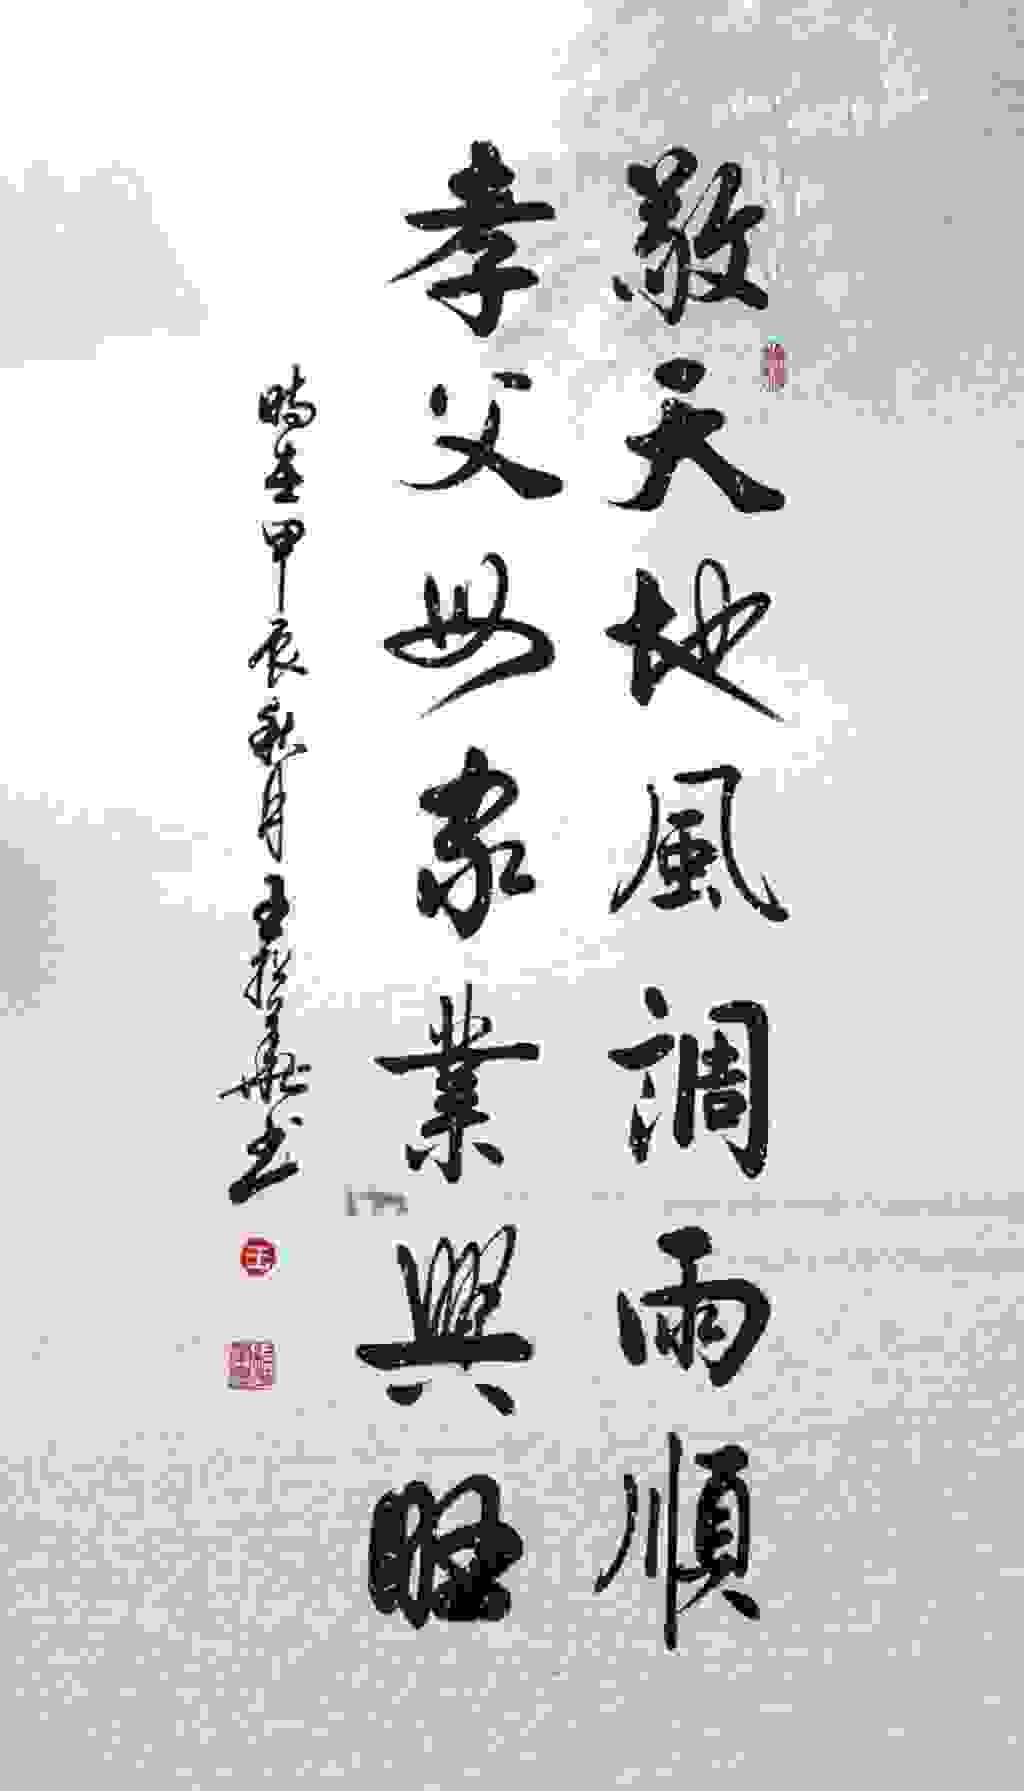 敬天地風調雨順
孝父母家業興旺
時在甲辰秋月王書
王